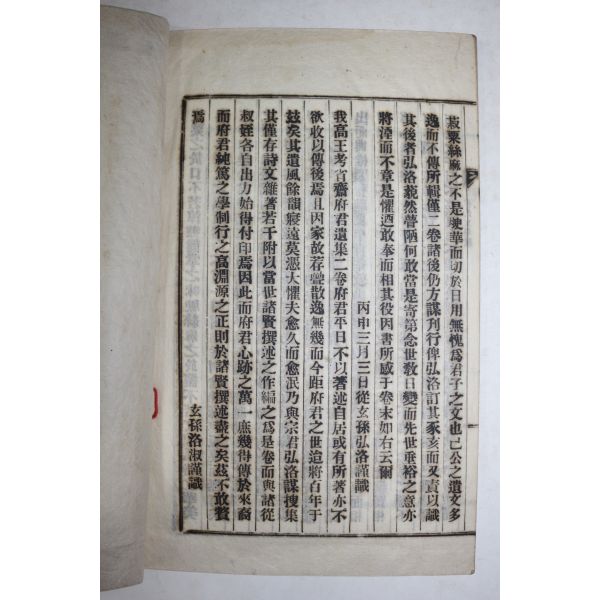 菽粟絲麻之不是堘華而切於日用無愧爲君子之文也已公之遺文多
逸而不傳所輯僅二卷諸後仍方謀刊行俾弘洛訂其豕亥而又責以識
其後者弘洛藐然瞢陋何敢當是寄第念世敎日變而先世垂裕之意亦
將湮而不章是懼迺敢奉而相其役因書所感于卷末如右云爾
丙申三月三日從玄孫弘洛謹識
我高王考省齋府君遺集二卷府君平日不以著述自居或有所著亦不
欲收以傳後焉且因家故荐疊散逸無幾而今距府君之世迨將百年于
玆矣其遺風餘韻寢遠莫憑大懼夫愈久而愈泯乃與宗君弘洛謀搜集
其僅存詩文雜著若干附以當世諸賢撰述之作編之爲是卷而與諸從
叔姪各自出力始得付印焉因此而府君心跡之萬一庶幾得傳於來裔
而府君純篤之學制行之高淵源之正則於諸賢撰述盡之矣茲不敢贅
焉
玄孫洛淑謹識